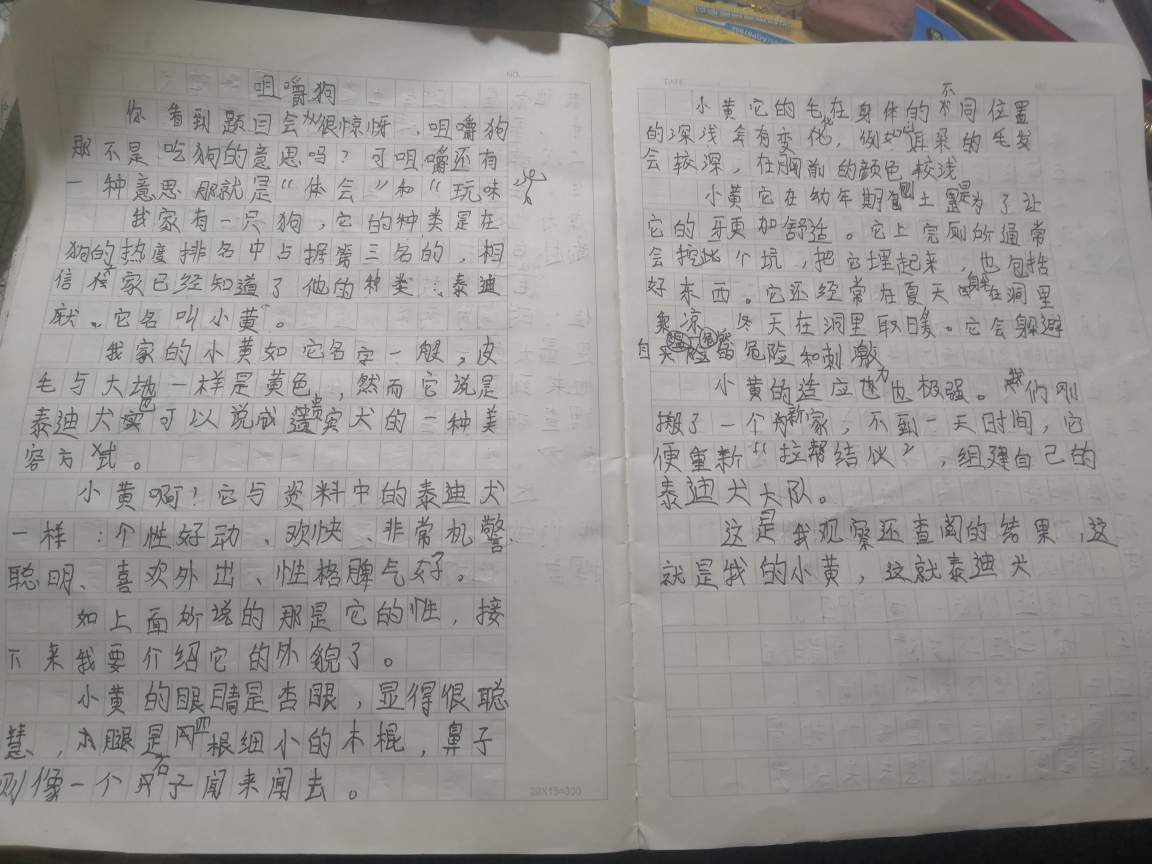 咀嚼狗
你看到题目会很惊讶，咀嚼狗
那不是吃狗的意思吗？可咀嚼还有
一种意思那就是“体会”和“玩味”
我家有一只狗，它的种类是在
狗的热度排名中占据第三名的，相
信大家已经知道了他的种类：泰迪
犬。它名叫小黄。
我家的小黄如它名字一般，皮
毛与大地一样是黄色，然而它说是
泰迪犬实可以说成是贵宾犬的一种美
容方式。
小黄啊！它与资料中的泰迪犬
一样：个性好动、欢快、非常机警、
聪明、喜欢外出、性格脾气好。
如上面所说的那是它的性，接
下来我要介绍它的外貌了。
小黄的眼睛是杏眼，显得很聪
慧，腿是四根细小的木棍，鼻子
则像一个石子闻来闻去。
NO.
20X15=300
小黄它的毛在身体的不同位置
的深浅会有变化，例如耳朵的毛发
会较深，在胸前的颜色较浅
小黄它在幼年期刨土是为了让
它的牙更加舒适。它上完厕所通常
会挖个坑，把它埋起来，也包括
好东西。它还经常在夏天躲在洞里
乘凉，冬天在洞里取暖。它会躲避
自危险和刺激
小黄的适应力也极强。我们刚
搬了一个新家，不到一天时间，它
便重新“拉帮结伙”，组建自己的
泰迪犬大队。
这是我观察还查阅的结果，这
就是我的小黄，这就泰迪犬